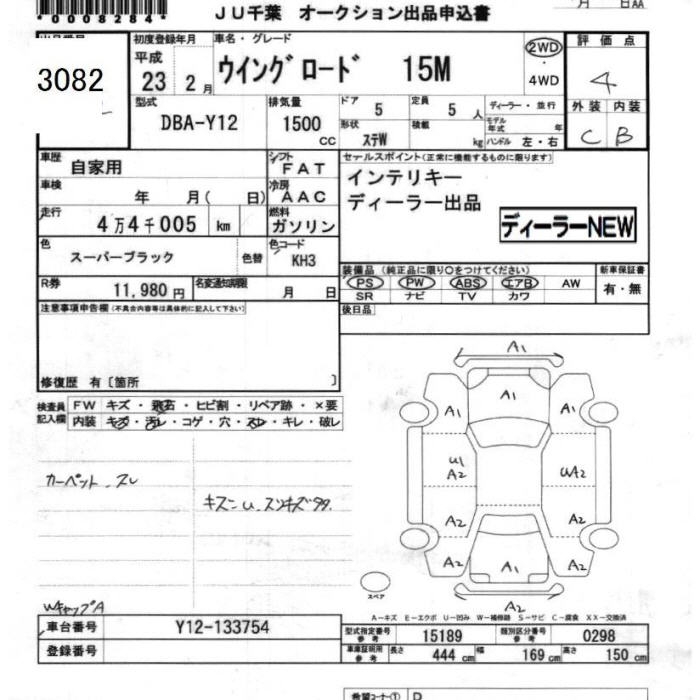 *0008284*
JU千葉 オークション出品申込書
月 日AA
出品番号 初度登録年月 車名・グレード 評価点
3082 平成 23 2月 ウイングロード 15M 2WD ・ 4WD 4
型式 排気量 ドア 5 定員 5人 ディーラー・並行 外装 内装
DBA-Y12 1500 cc 形状 ステW 積載 kg モデル年式 年 ハンドル 左・右 C B
車歴 自家用 シフト FAT セールスポイント(正常に機能するものに限ります)
車検 年 月( 日) 冷房 AAC インテリキー
走行 4万4千005 km 燃料 ガソリン ディーラー出品
ディーラーNEW
色 スーパーブラック 色替 色コード KH3
装備品(純正品に限り〇をつけてください) 新車保証書
R券 11,980円 名変通知期限 月 日 PS PW ABS エアB AW 有・無
SR ナビ TV カワ
注意事項申告欄(不具合内容等は具体的に記入して下さい) 後日品
修復歴 有〔箇所 〕
検査員記入欄 FW キズ・飛石・ヒビ割・リペア跡・×要
内装 キズ・汚レ・コゲ・穴・スレ・キレ・破レ
A1
A1 A1 A1
カーペット、スレ U1 A2 UA2
キズ
A2 A2
A2 A1 A2
スペア A2
WキャップA
A-キズ E-エクボ U-凹み W-補修跡 S-サビ C-腐食 XX-交換済
車台番号 Y12-133754 型式指定番号 参考 15189 類別区分番号 参考 0298
登録番号 車庫証明用 参考 長さ 444cm 幅 169cm 高さ 150cm
希望コーナー① D